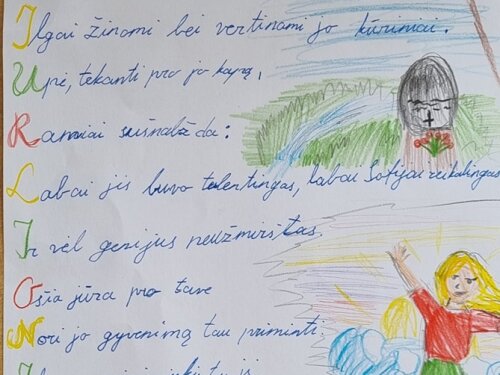 Ilgai žinomi bei vertinami jo kūriniai.
Upė, tekanti pro jo kapą,
Ramiai sušnabžda:
Labai jis buvo talentingas, labai Sofijai reikalingas
Ir vėl genijus neužmirštas.
Ošia jūra pro tave
Nori jo gyvenimą tau priminti.